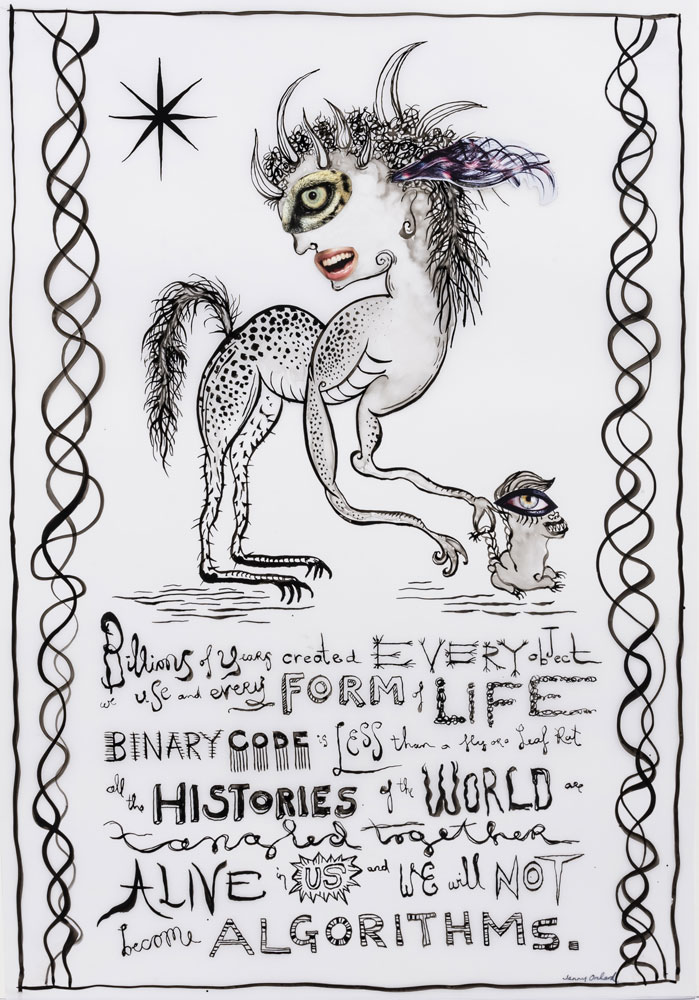 Billions of years created EVERY object
we use and every FORM of LIFE
BINARY CODE is LESS than a fly or a Leaf But
all the HISTORIES of the WORLD are
tangled together
ALIVE in US and WE will NOT
become ALGORITHMS.